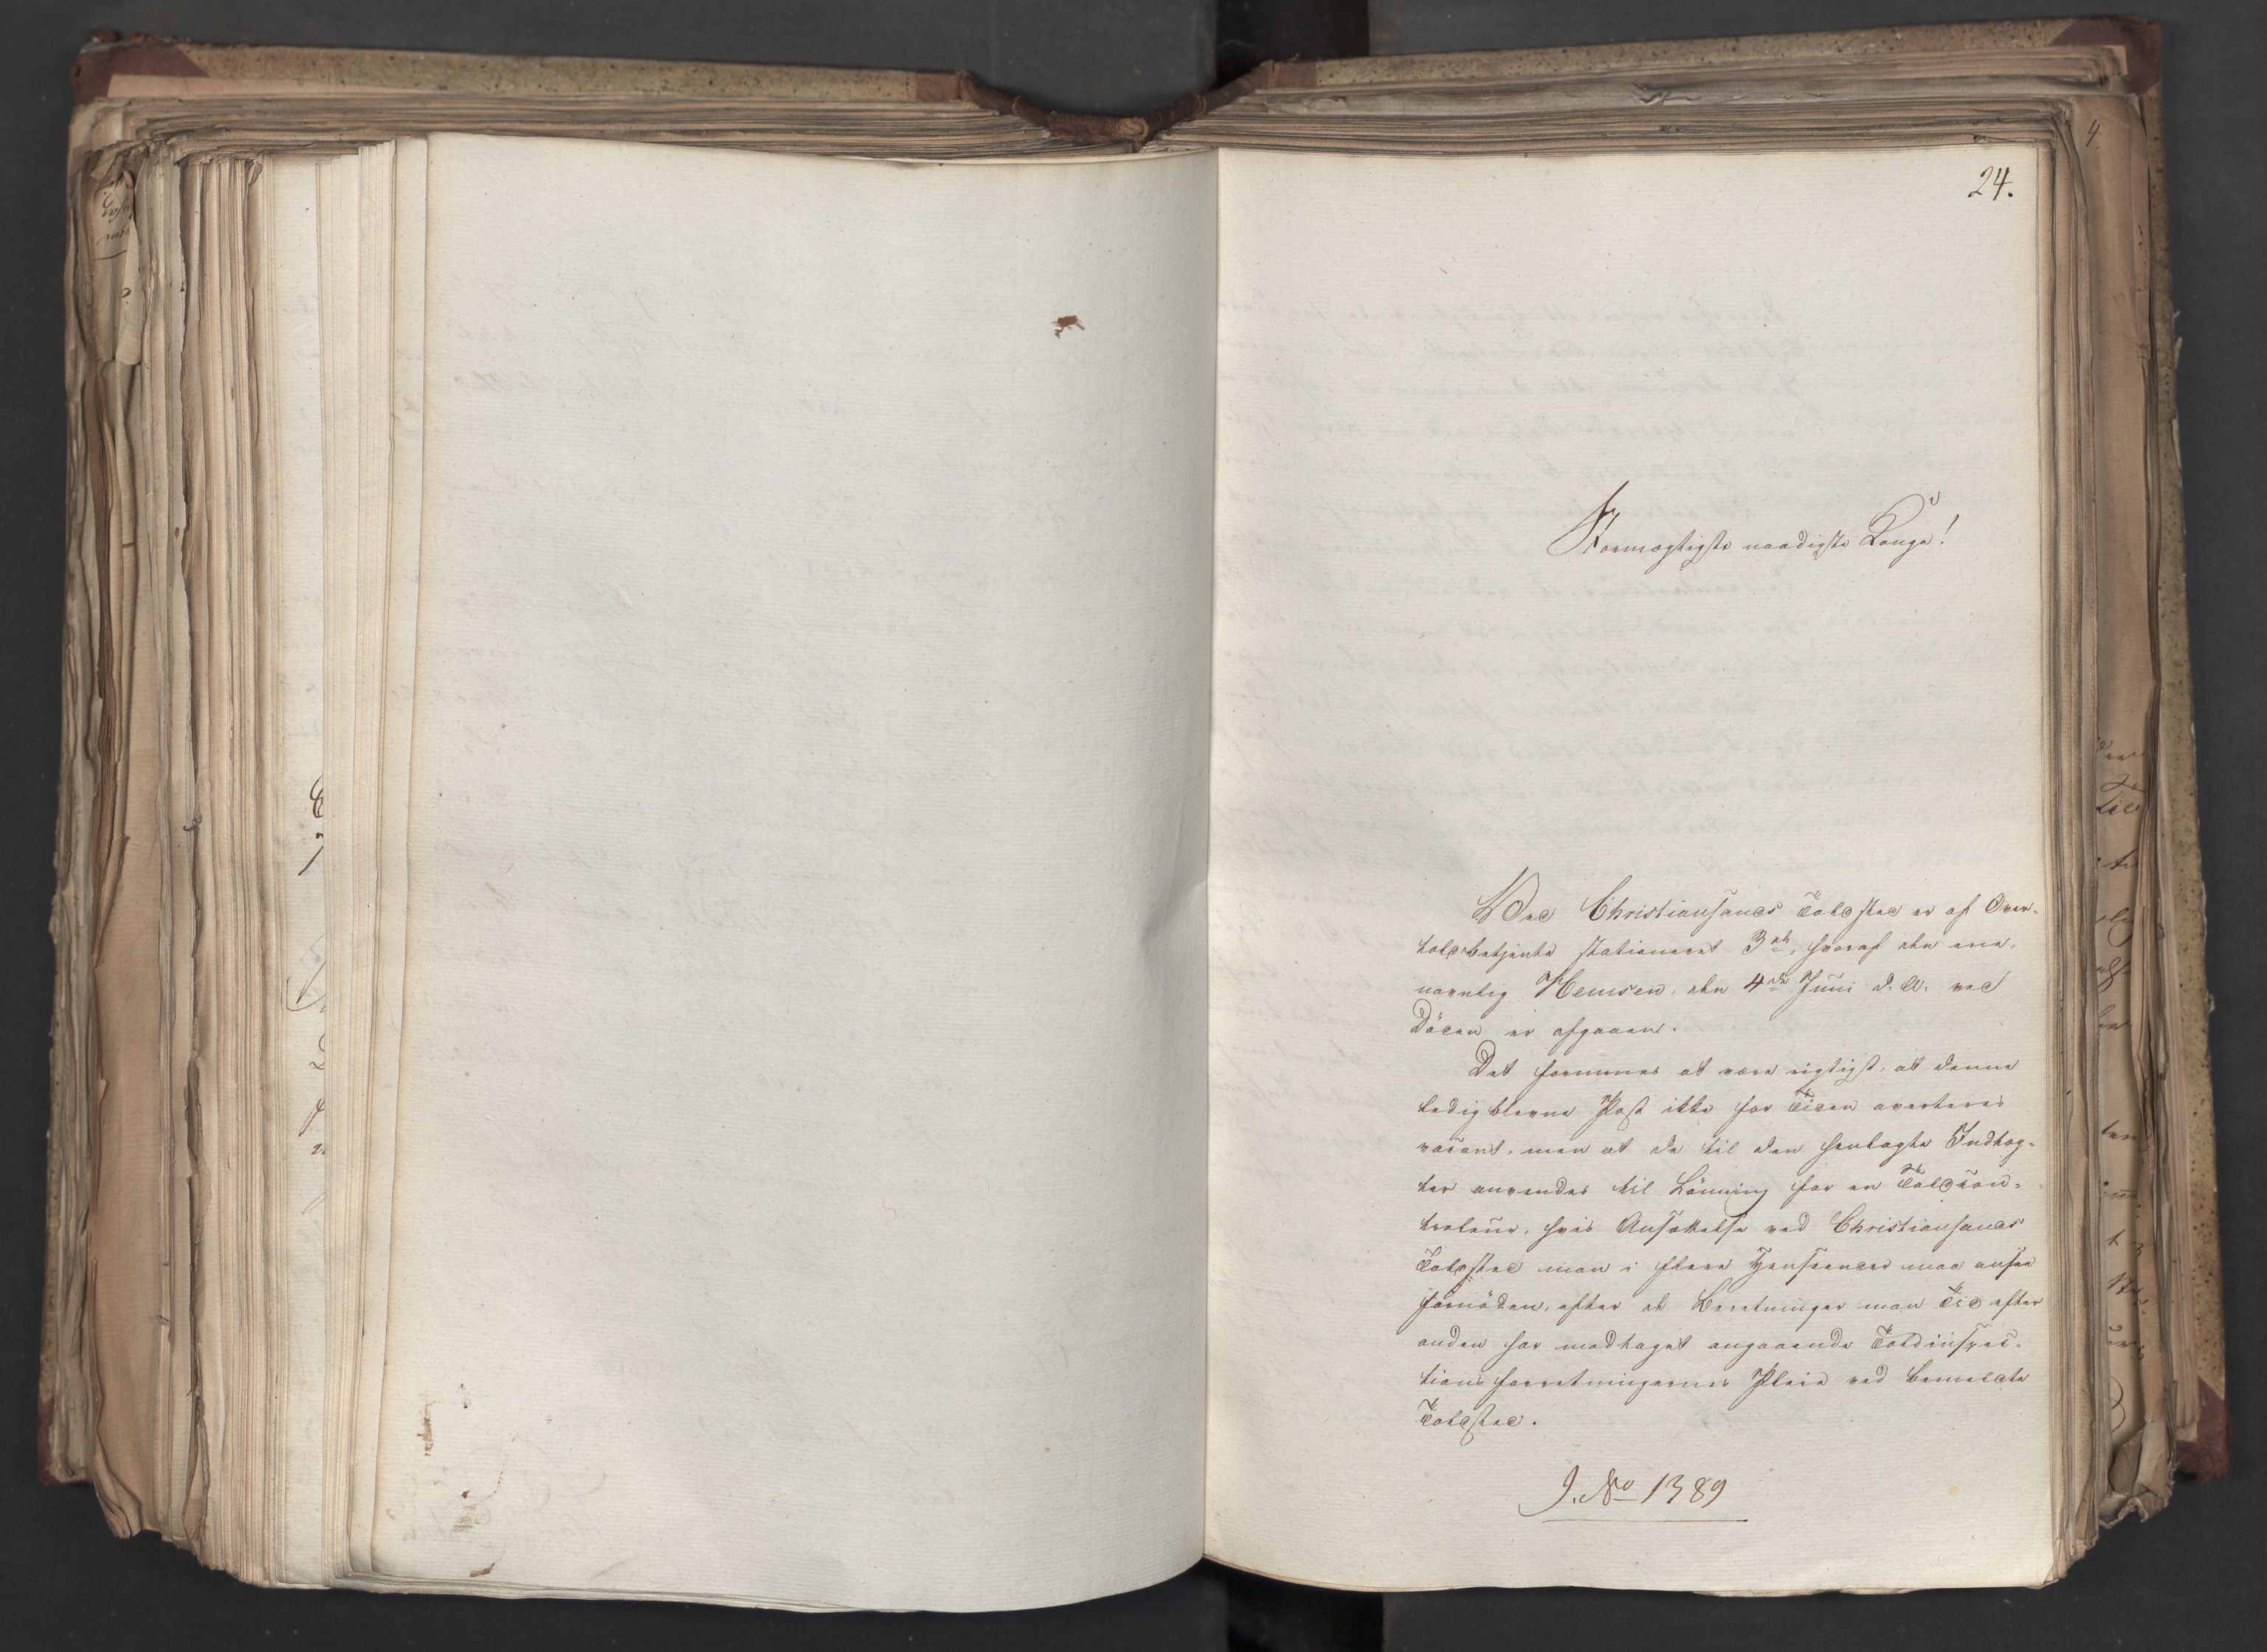 24.
Stormægtigste naadigste Konge!
Ved Christiansands Toldsted er af Over-
toldbetjente stationeret 3de, hvoraf den ene,
navnlig Hemsen, den 4de Juni d. A. ved
Döden er afgaaen.
Det formenes at være rigtigst, at denne
ledigblevne Post ikke for Tiden averteres
vacant, men at de til den henlagte Indtæg-
ter anvendes til Lönning for en Toldcon-
troleur, hvis Ansættelse ved Christiansands
Toldsted man i flere Henseender maa ansee
fornöden, efter de Beretninger man Tid efter
anden har modtaget angaaende Toldinspec-
tionsforretningernes Pleie ved bemeldte
Toldsted.
J. No 1389